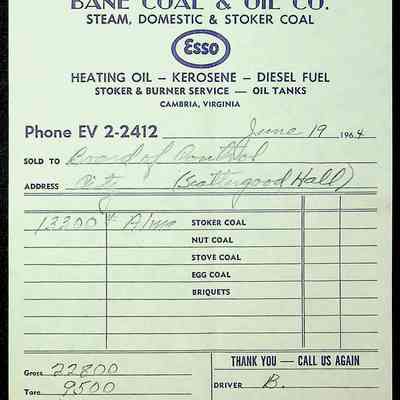 BANE COAL & OIL CO.
STEAM, DOMESTIC & STOKER COAL
Esso
HEATING OIL — KEROSENE — DIESEL FUEL
STOKER & BURNER SERVICE — OIL TANKS
CAMBRIA, VIRGINIA
Phone EV 2-2412 June 19 1964
SOLD TO Board of Control
ADDRESS City (Scattergood Hall)
13300 # STOKER COAL
NUT COAL
STOVE COAL
EGG COAL
BRIQUETS
Gross 22800
Tare 9500
THANK YOU — CALL US AGAIN
DRIVER B.